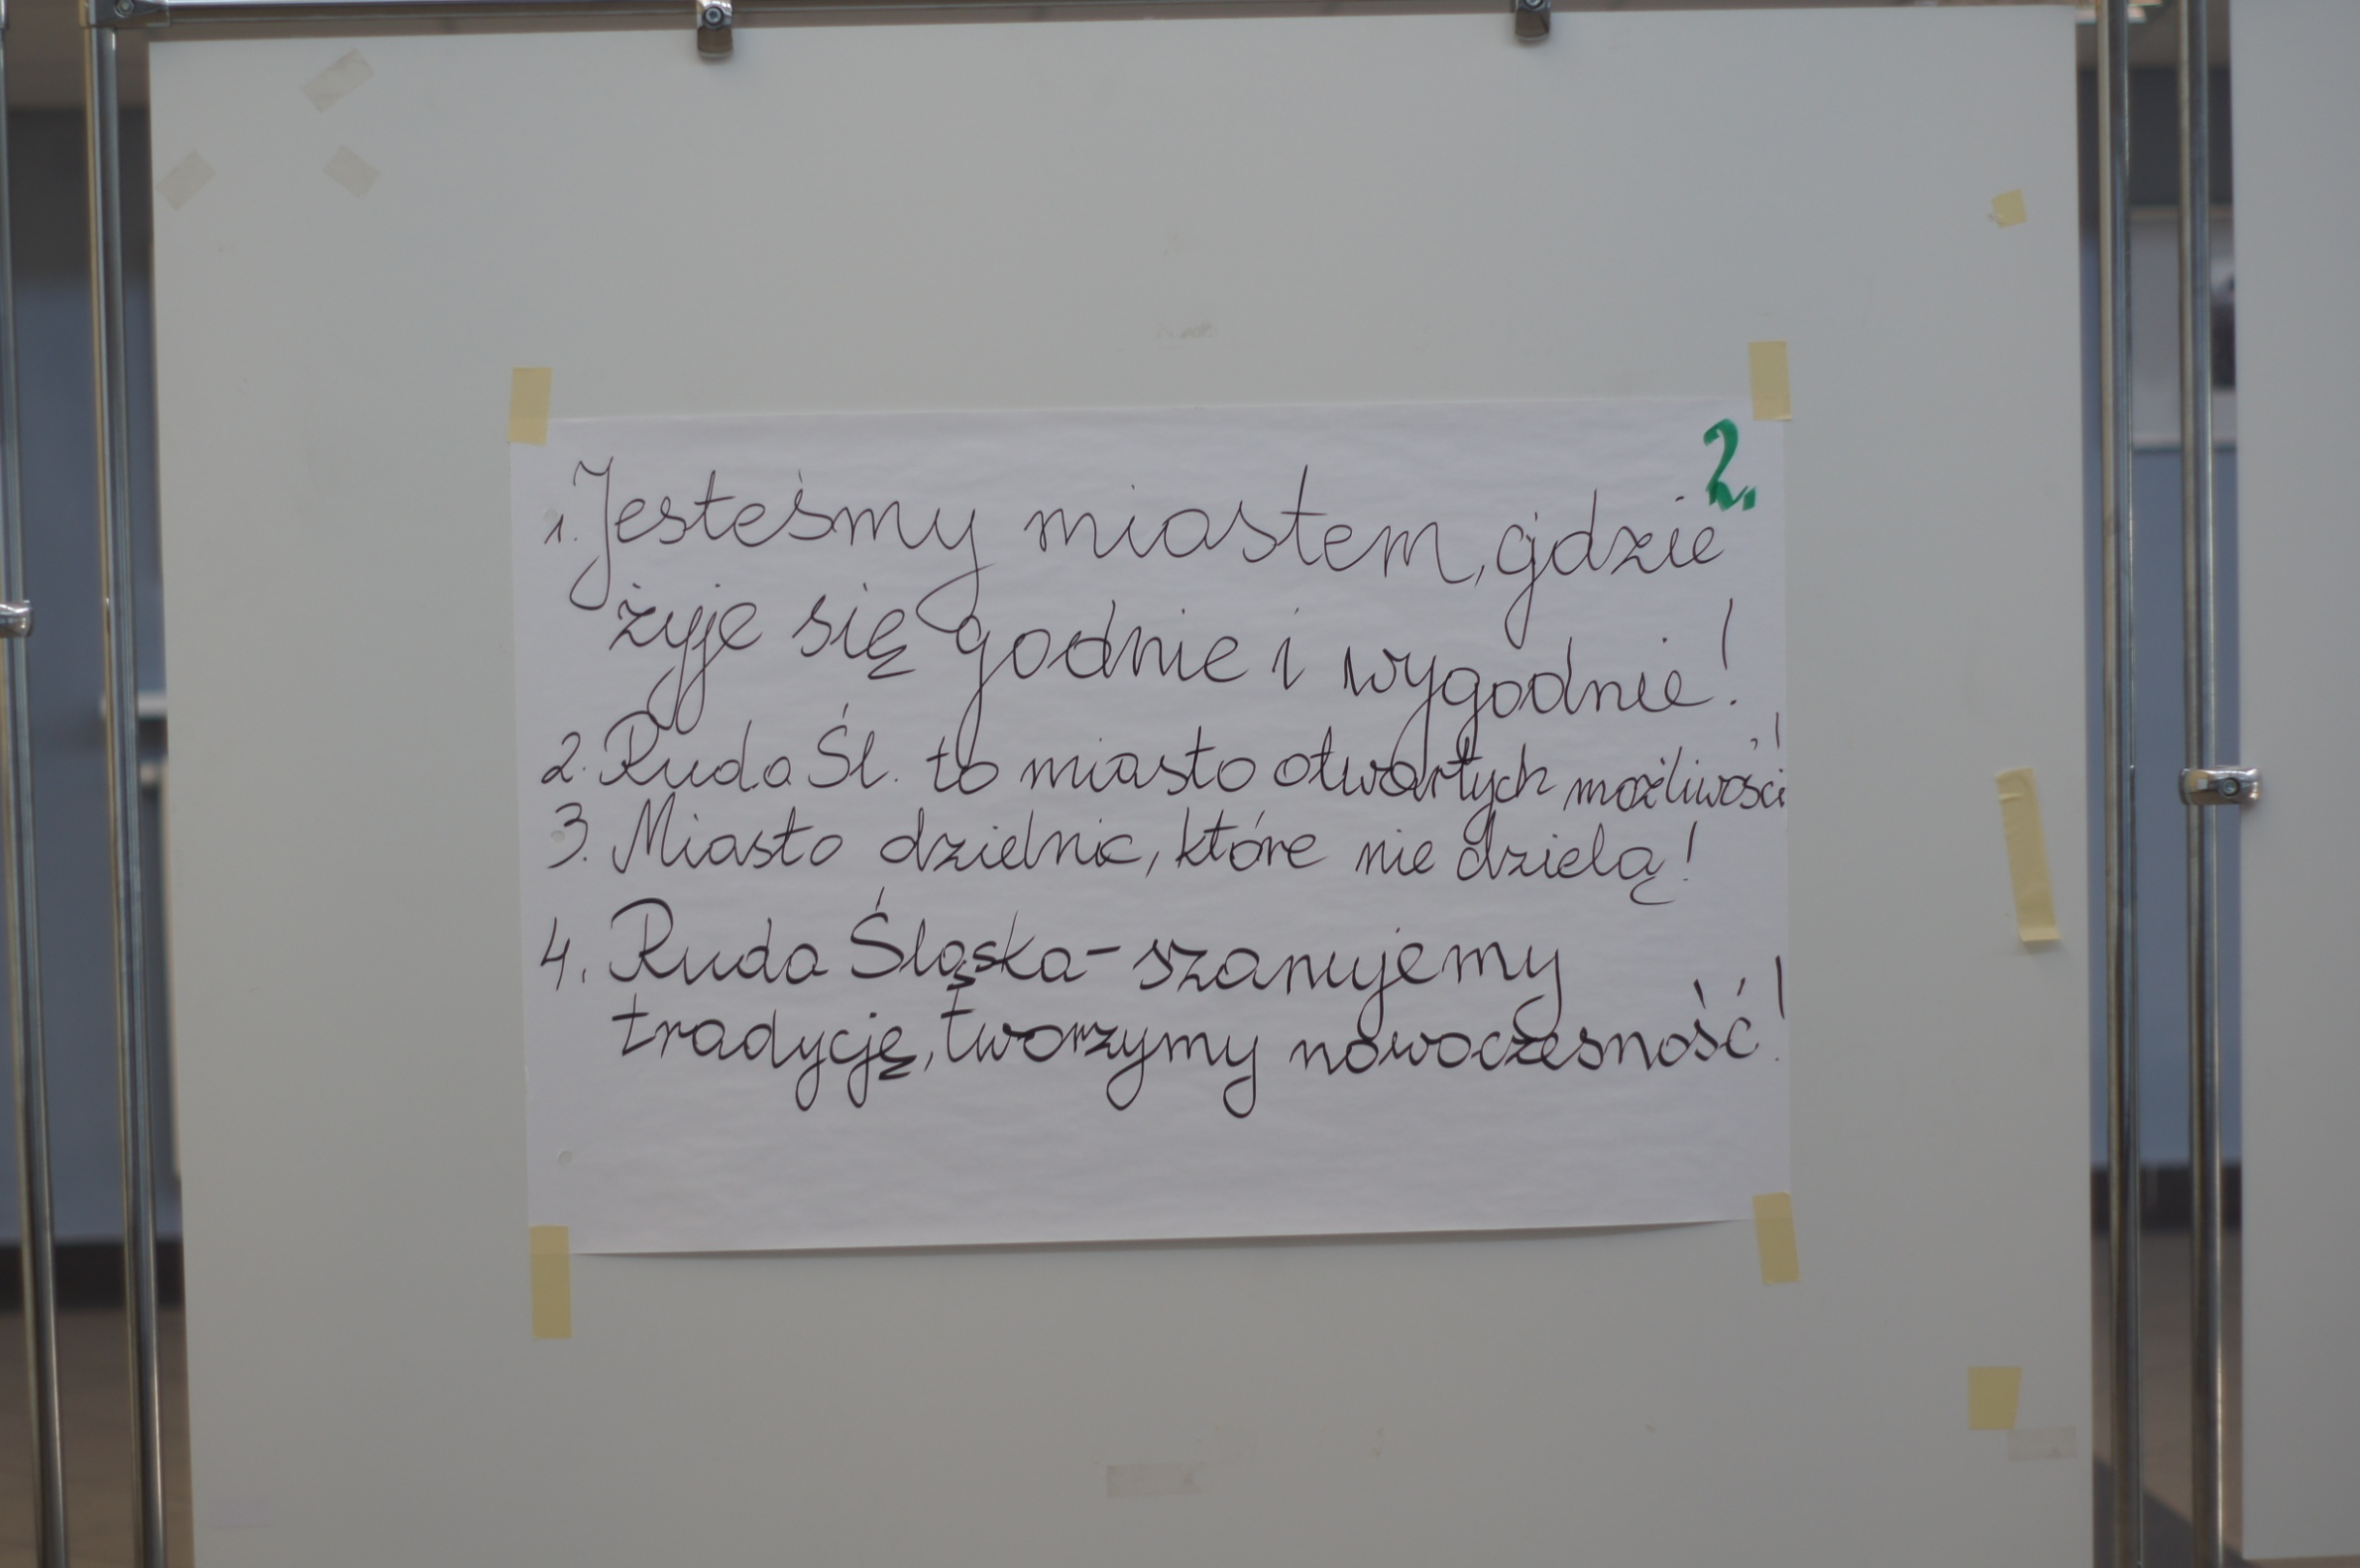 2.
1. Jesteśmy miastem, gdzie
żyje się godnie i wygodnie!
2. Ruda Śl. to miasto otwartych możliwości!
3. Miasto dzielnic, które nie dzielą!
4. Ruda Śląska - szanujemy
tradycję, tworzymy nowoczesność!